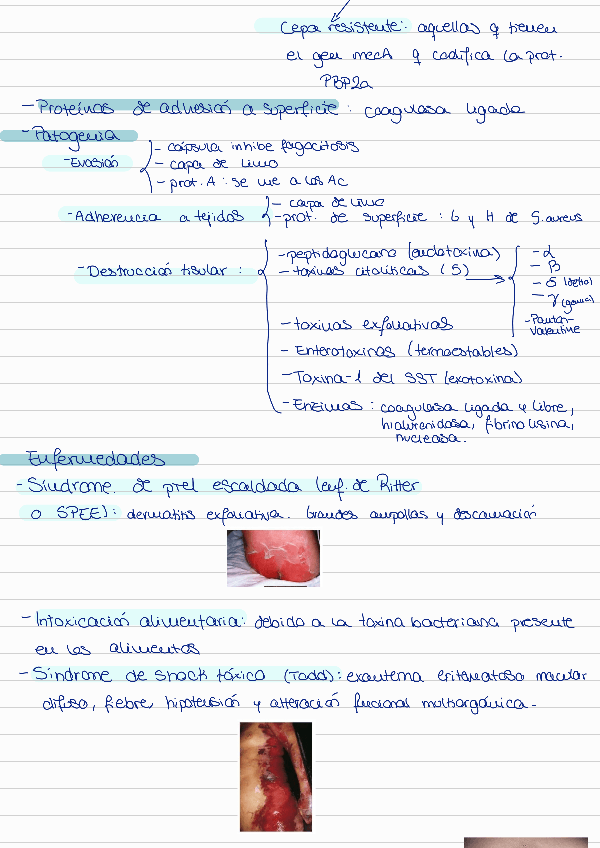 Cepa resistente: aquellas q tienen
el gen mecA q codifica la prot.
PBP2a
- Proteínas de adhesión a superficie: coagulasa ligada
- Patogenia
- Evasión
- cápsula inhibe fagocitosis
- capa de limo
- prot. A: se une a los Ac
- Adherencia a tejidos
- capa de limo
- prot. de superficie: G y H de S. aureus
- Destrucción tisular:
- peptidoglucano (endotoxina)
- toxinas citolíticas (5)
- α
- β
- δ (delta)
- γ (gamma)
- Panton-
Valentine
- toxinas exfoliativas
- Enterotoxinas (termoestables)
- Toxina-1 del SST (exotoxina)
- Enzimas: coagulasa ligada y libre,
hialuronidasa, fibrinolisina,
nucleasa.
Enfermedades
- Síndrome de piel escaldada (enf. de Ritter
o SPEE): dermatitis exfoliativa. Grandes ampollas y descamación
- Intoxicación alimentaria: debido a la toxina bacteriana presente
en los alimentos
- Síndrome de shock tóxico (Todd): exantema eritematoso macular
difuso, fiebre, hipotensión y alteración funcional multiorgánica.